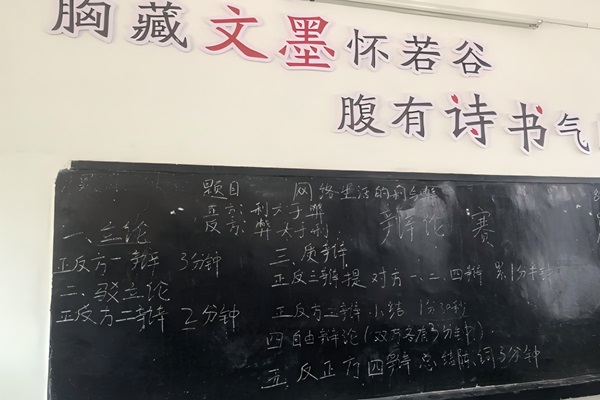 胸藏文墨怀若谷
腹有诗书气
题目 网络生活的利与弊
正方：利大于弊
反方：弊大于利
辩论赛
一、立论
正反方一辩 3分钟
二、驳立论
正反方二辩 2分钟
三、质辩
正反三辩提 对方一、二、四辩
正反方三辩 小结
四 自由辩论（双方各有3分钟）
五、反正方四辩 总结陈词3分钟